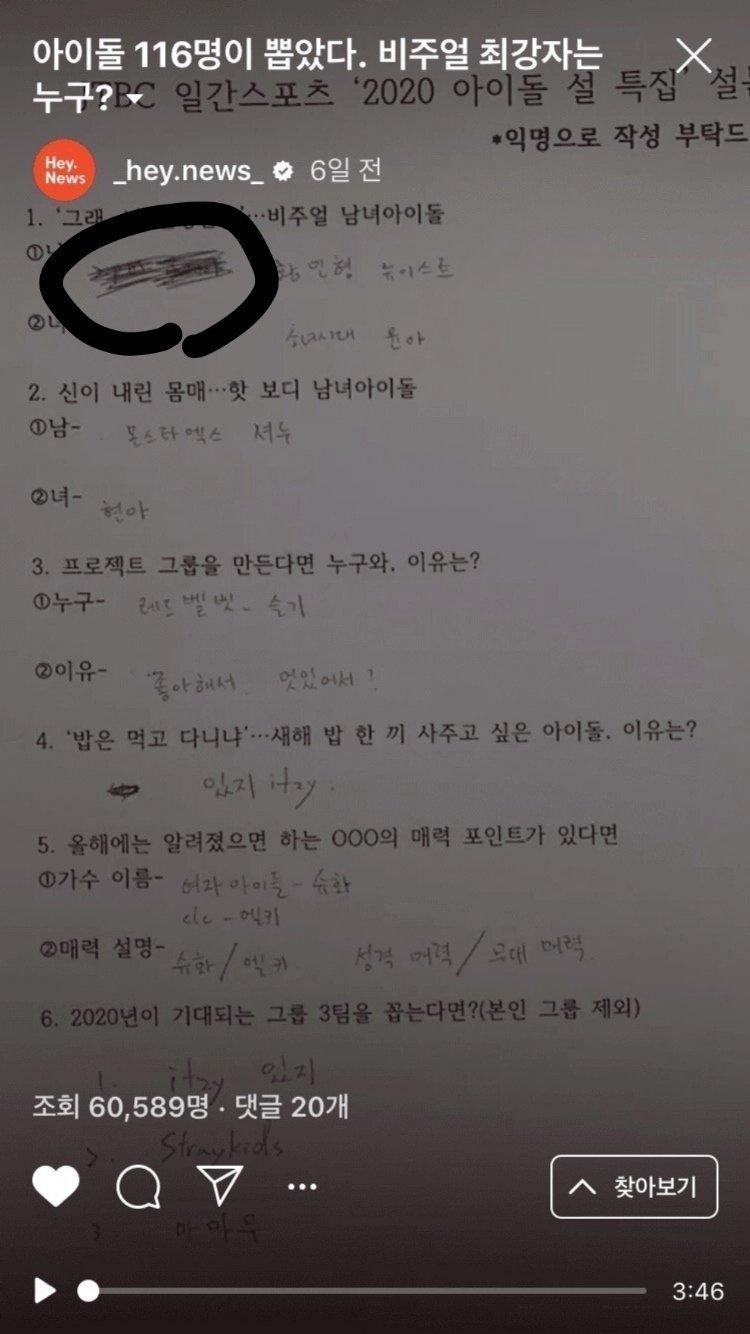 아이돌 116명이 뽑았다. 비주얼 최강자는
누구?
BC 일간스포츠 '2020 아이돌 설 특집'
*익명으로 작성 부탁드
Hey.
News
_hey.news_ 6일 전
1. '그래 '…비주얼 남녀아이돌
① 황민형 뉴이스트
②녀 소녀시대 윤아
2. 신이 내린 몸매…핫 보디 남녀아이돌
①남- 몬스타엑스 셔누
②녀-
현아
3. 프로젝트 그룹을 만든다면 누구와, 이유는?
①누구- 레드벨벳- 슬기
②이유- 좋아해서. 멋있어서?
4. '밥은 먹고 다니냐'…새해 밥 한 끼 사주고 싶은 아이돌, 이유는?
있지 itzy.
5. 올해에는 알려졌으면 하는 OOO의 매력 포인트가 있다면
①가수 이름- 여자아이들- 슈화
clc - 엘키
②매력 설명- 슈화/엘키 성격 매력/무대 매력
6. 2020년이 기대되는 그룹 3팀을 꼽는다면?(본인 그룹 제외)
1. itzy 있지
조회 60,589명 · 댓글 20개
2. Straykids
찾아보기
3 마마무
3:46